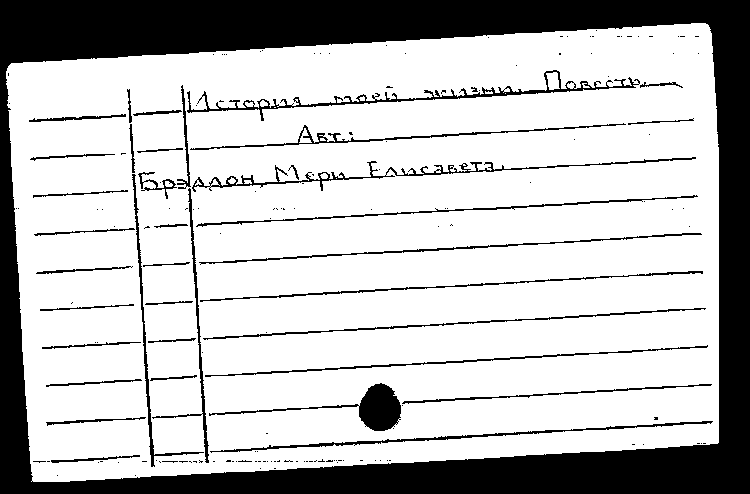 История моей жизни. Повесть.
Авт.:
Брэддон, Мери Елисавета.